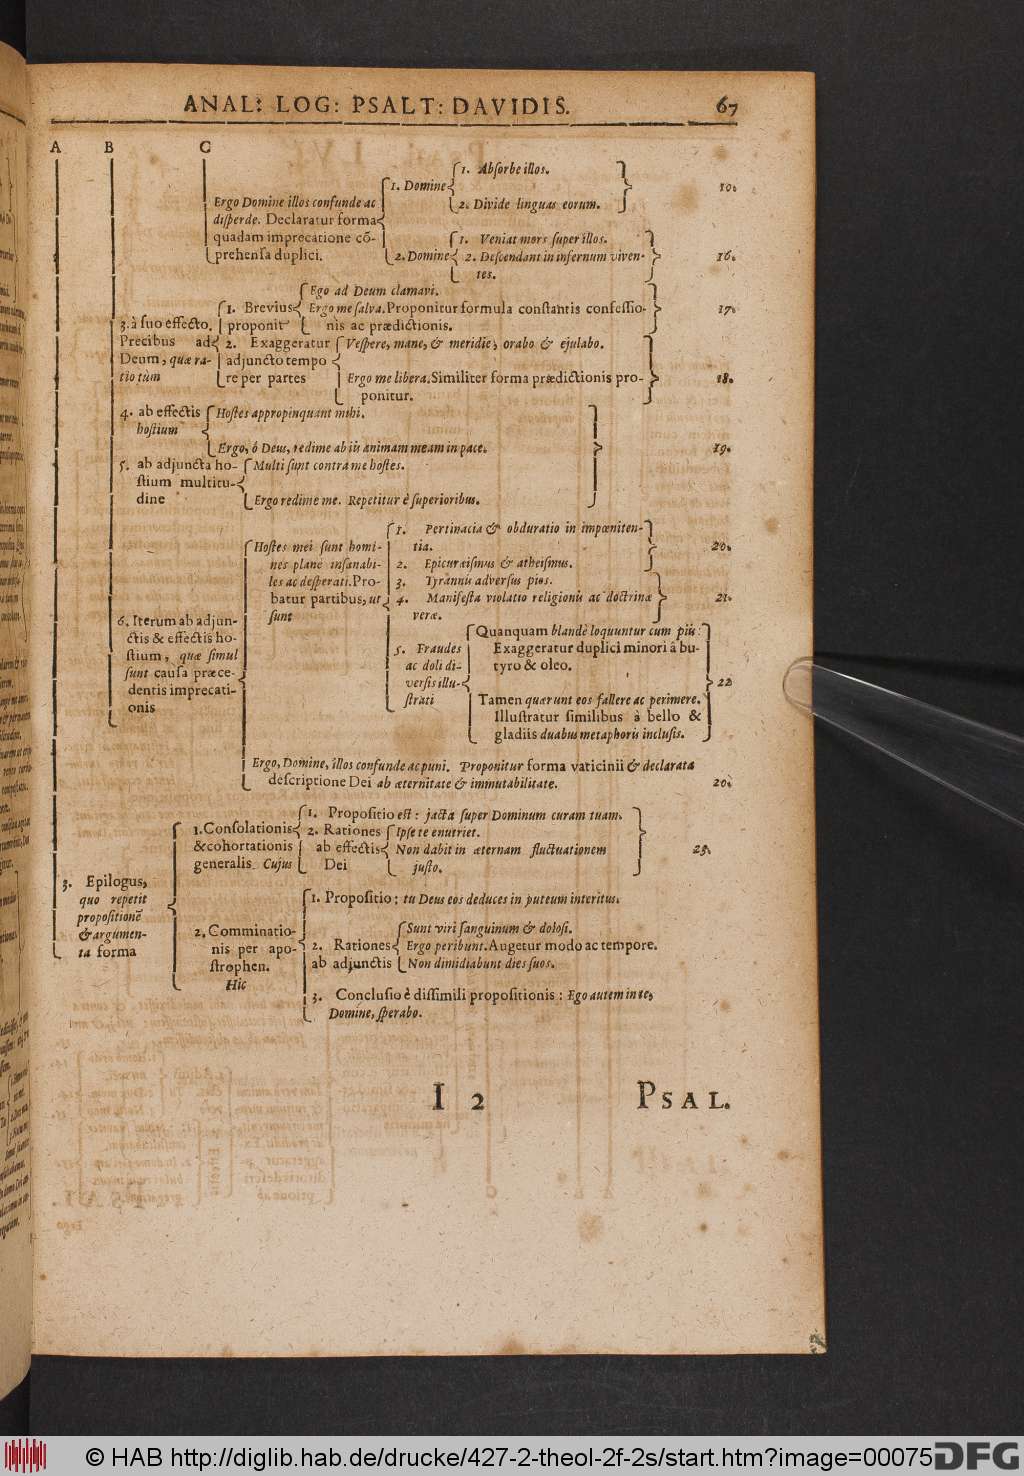 ANAL: LOG: PSALT: DAVIDIS. 67
A B C
Ergo Domine illos confunde ac
disperde. Declaratur forma
quadam imprecatione cō-
prehensa duplici.
1. Domine
1. Absorbe illos.
2. Divide linguas eorum.
10.
2. Domine
1. Veniat mors super illos.
2. Descendant in infernum viven-
tes.
16.
3. à suo effecto.
Precibus ad
Deum, quæ ra-
tio tùm
1. Brevius
proponit
Ego ad Deum clamavi.
Ergo me salva. Proponitur formula constantis confessio-
nis ac prædictionis.
17.
2. Exaggeratur
adjuncto tempo
re per partes
Vespere, mane, & meridie, orabo & ejulabo.
Ergo me libera. Similiter forma prædictionis pro-
ponitur.
18.
4. ab effectis
hostium
Hostes appropinquant mihi.
Ergo, ô Deus, redime ab iis animam meam in pace.
19.
5. ab adjuncta ho-
stium multitu-
dine
Multi sunt contra me hostes.
Ergo redime me. Repetitur è superioribus.
6. Iterum ab adjun-
ctis & effectis ho-
stium, quæ simul
sunt causa præce-
dentis imprecati-
onis
Hostes mei sunt homi-
nes planè insanabi-
les ac desperati. Pro-
batur partibus, ut
sunt
1. Pertinacia & obduratio in impœniten-
tia.
2. Epicuræismus & atheismus.
20.
3. Tyrannis adversus pios.
4. Manifesta violatio religionis ac doctrinæ
veræ.
21.
5. Fraudes
ac doli di-
versis illu-
strati
Quanquam blandè loquuntur cum piis:
Exaggeratur duplici minori à bu-
tyro & oleo.
Tamen quærunt eos fallere ac perimere.
Illustratur similibus à bello &
gladiis duabus metaphoris inclusis.
22
Ergo, Domine, illos confunde ac puni. Proponitur forma vaticinii & declarata
descriptione Dei ab æternitate & immutabilitate.
20.
3. Epilogus,
quo repetit
propositionē
& argumen-
ta forma
1. Consolationis
& cohortationis
generalis Cujus
1. Propositio est: jacta super Dominum curam tuam.
2. Rationes
ab effectis
Dei
Ipse te enutriet.
Non dabit in æternam fluctuationem
justo.
23.
2. Comminatio-
nis per apo-
strophen.
Hic
1. Propositio: tu Deus eos deduces in puteum interitus.
2. Rationes
ab adjunctis
Sunt viri sanguinum & dolosi.
Ergo peribunt. Augetur modo ac tempore.
Non dimidiabunt dies suos.
3. Conclusio è dissimili propositionis: Ego autem in te,
Domine, sperabo.
I 2 PSAL.
© HAB http://diglib.hab.de/drucke/427-2-theol-2f-2s/start.htm?image=00075
DFG